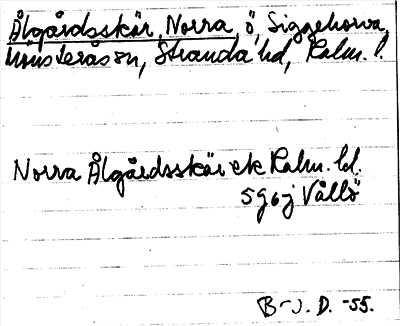 Ålgårdsskär, Norra, ö, Siggehorva,
Mönsterås sn, Stranda hd, Kalm. l.
Norra Ålgårdsskär ek Kalm. ld.
5g6j Vållö
B-J. D. -55.